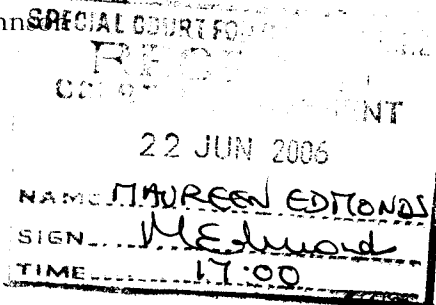 SPECIAL COURT FOR
22 JUN 2006
NAME MAUREEN EDMONDS
SIGN MEdmond
TIME 17:00